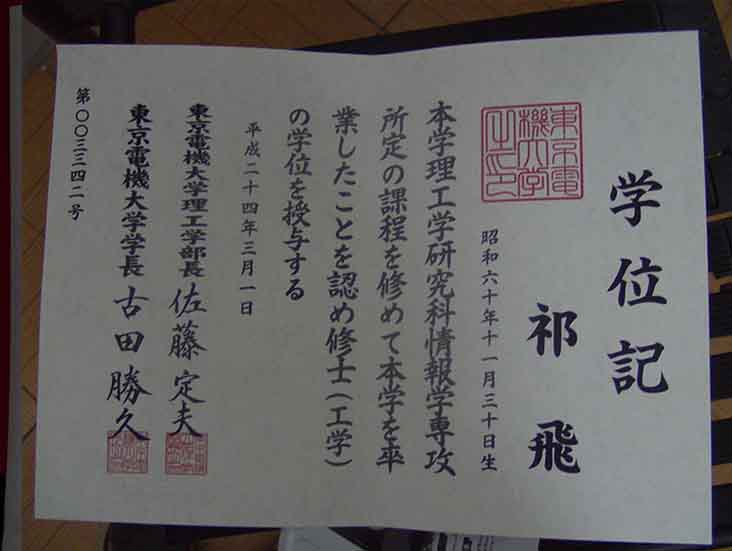 学位記
祁飛
昭和六十年十一月三十日生
東京電機大学之印
本学理工学研究科情報学専攻
所定の課程を修めて本学を卒
業したことを認め修士(工学)
の学位を授与する
平成二十四年三月一日
東京電機大学理工学部長 佐藤定夫
東京電機大学学長 古田勝久
第〇〇三三四二号